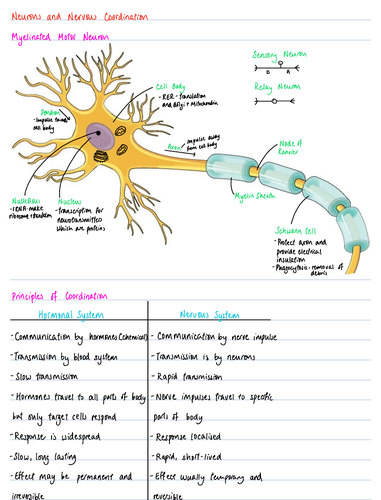 Neurons and Nervous Coordination
Myelinated Motor Neuron
Sensory Neuron
D A
Relay Neuron
Cell Body
- RER - Translation
and Golgi + Mitochondria
Dendron
- Impulse
cell body
Axon
impulse away
from cell body
Node of
Ranvier
Myelin Sheath
Nucleolus
- rRNA - make
ribosome + random
Nucleus
- Transcription for
neurotransmitted
which are proteins
Schwann Cell
- Protect axon and
provide electrical
insulation
- Phagocytosis - removal of
debris
Principles of Coordination
Hormonal System
Nervous System
- Communication by hormones (chemical)
- Communication by nerve impulse
- Transmission by blood system
- Transmission is by neurons
- Slow transmission
- Rapid transmission
- Hormones travel to all parts of body
- Nerve impulses travel to specific
but only target cells respond
parts of body
- Response is widespread
- Response localised
- Slow, long lasting
- Rapid, short-lived
- Effect may be permanent and
- Effect usually temporary and
irreversible
reversible